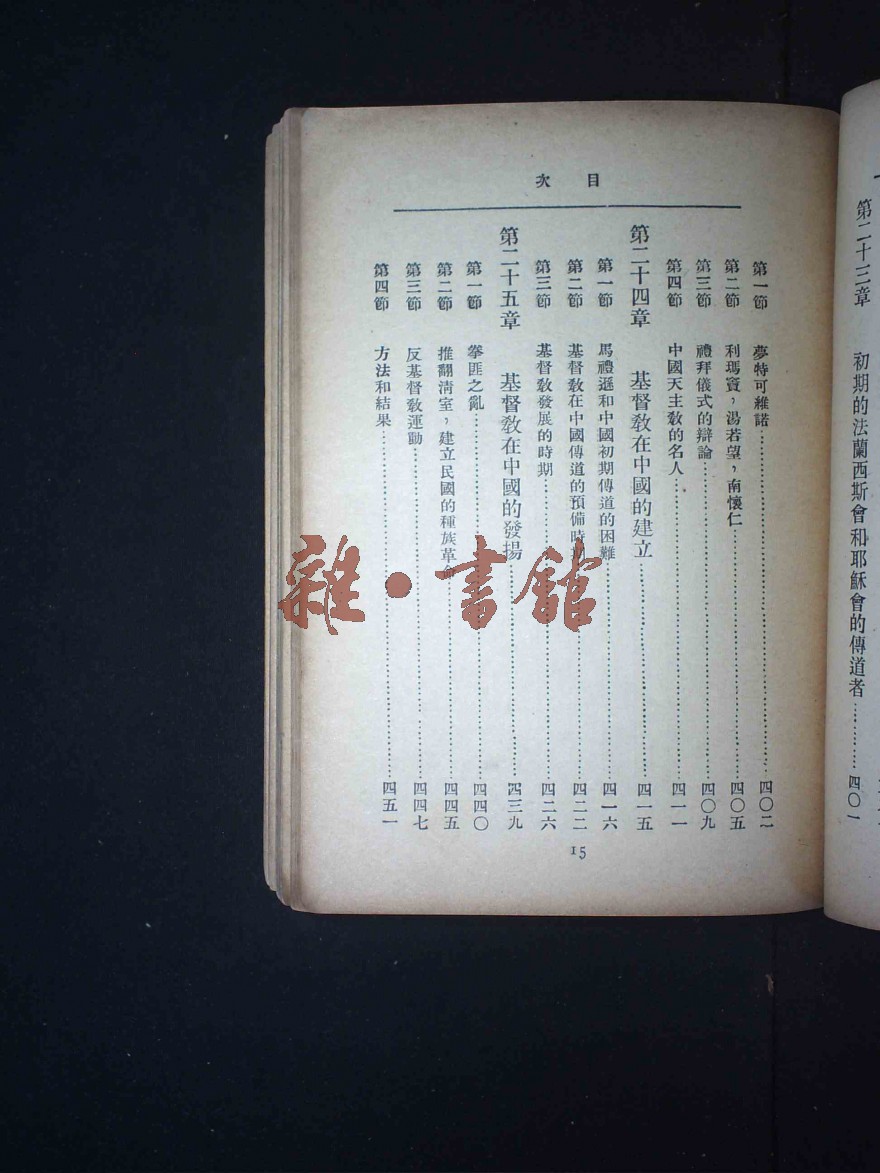 第二十三章　初期的法蘭西斯會和耶穌會的傳道者…………四〇一
目次
第一節　夢特可維諾…………四〇二
第二節　利瑪竇，湯若望，南懷仁…………四〇五
第三節　禮拜儀式的辯論…………四〇九
第四節　中國天主教的名人…………四一一
第二十四章　基督教在中國的建立…………四一五
第一節　馬禮遜和中國初期傳道的困難…………四一六
第二節　基督教在中國傳道的預備時期…………四二二
第三節　基督教發展的時期…………四二六
第二十五章　基督教在中國的發揚…………四三九
第一節　拳匪之亂…………四四〇
第二節　推翻清室，建立民國的種族革命…………四四五
第三節　反基督教運動…………四四七
第四節　方法和結果…………四五一
15
雜·書館